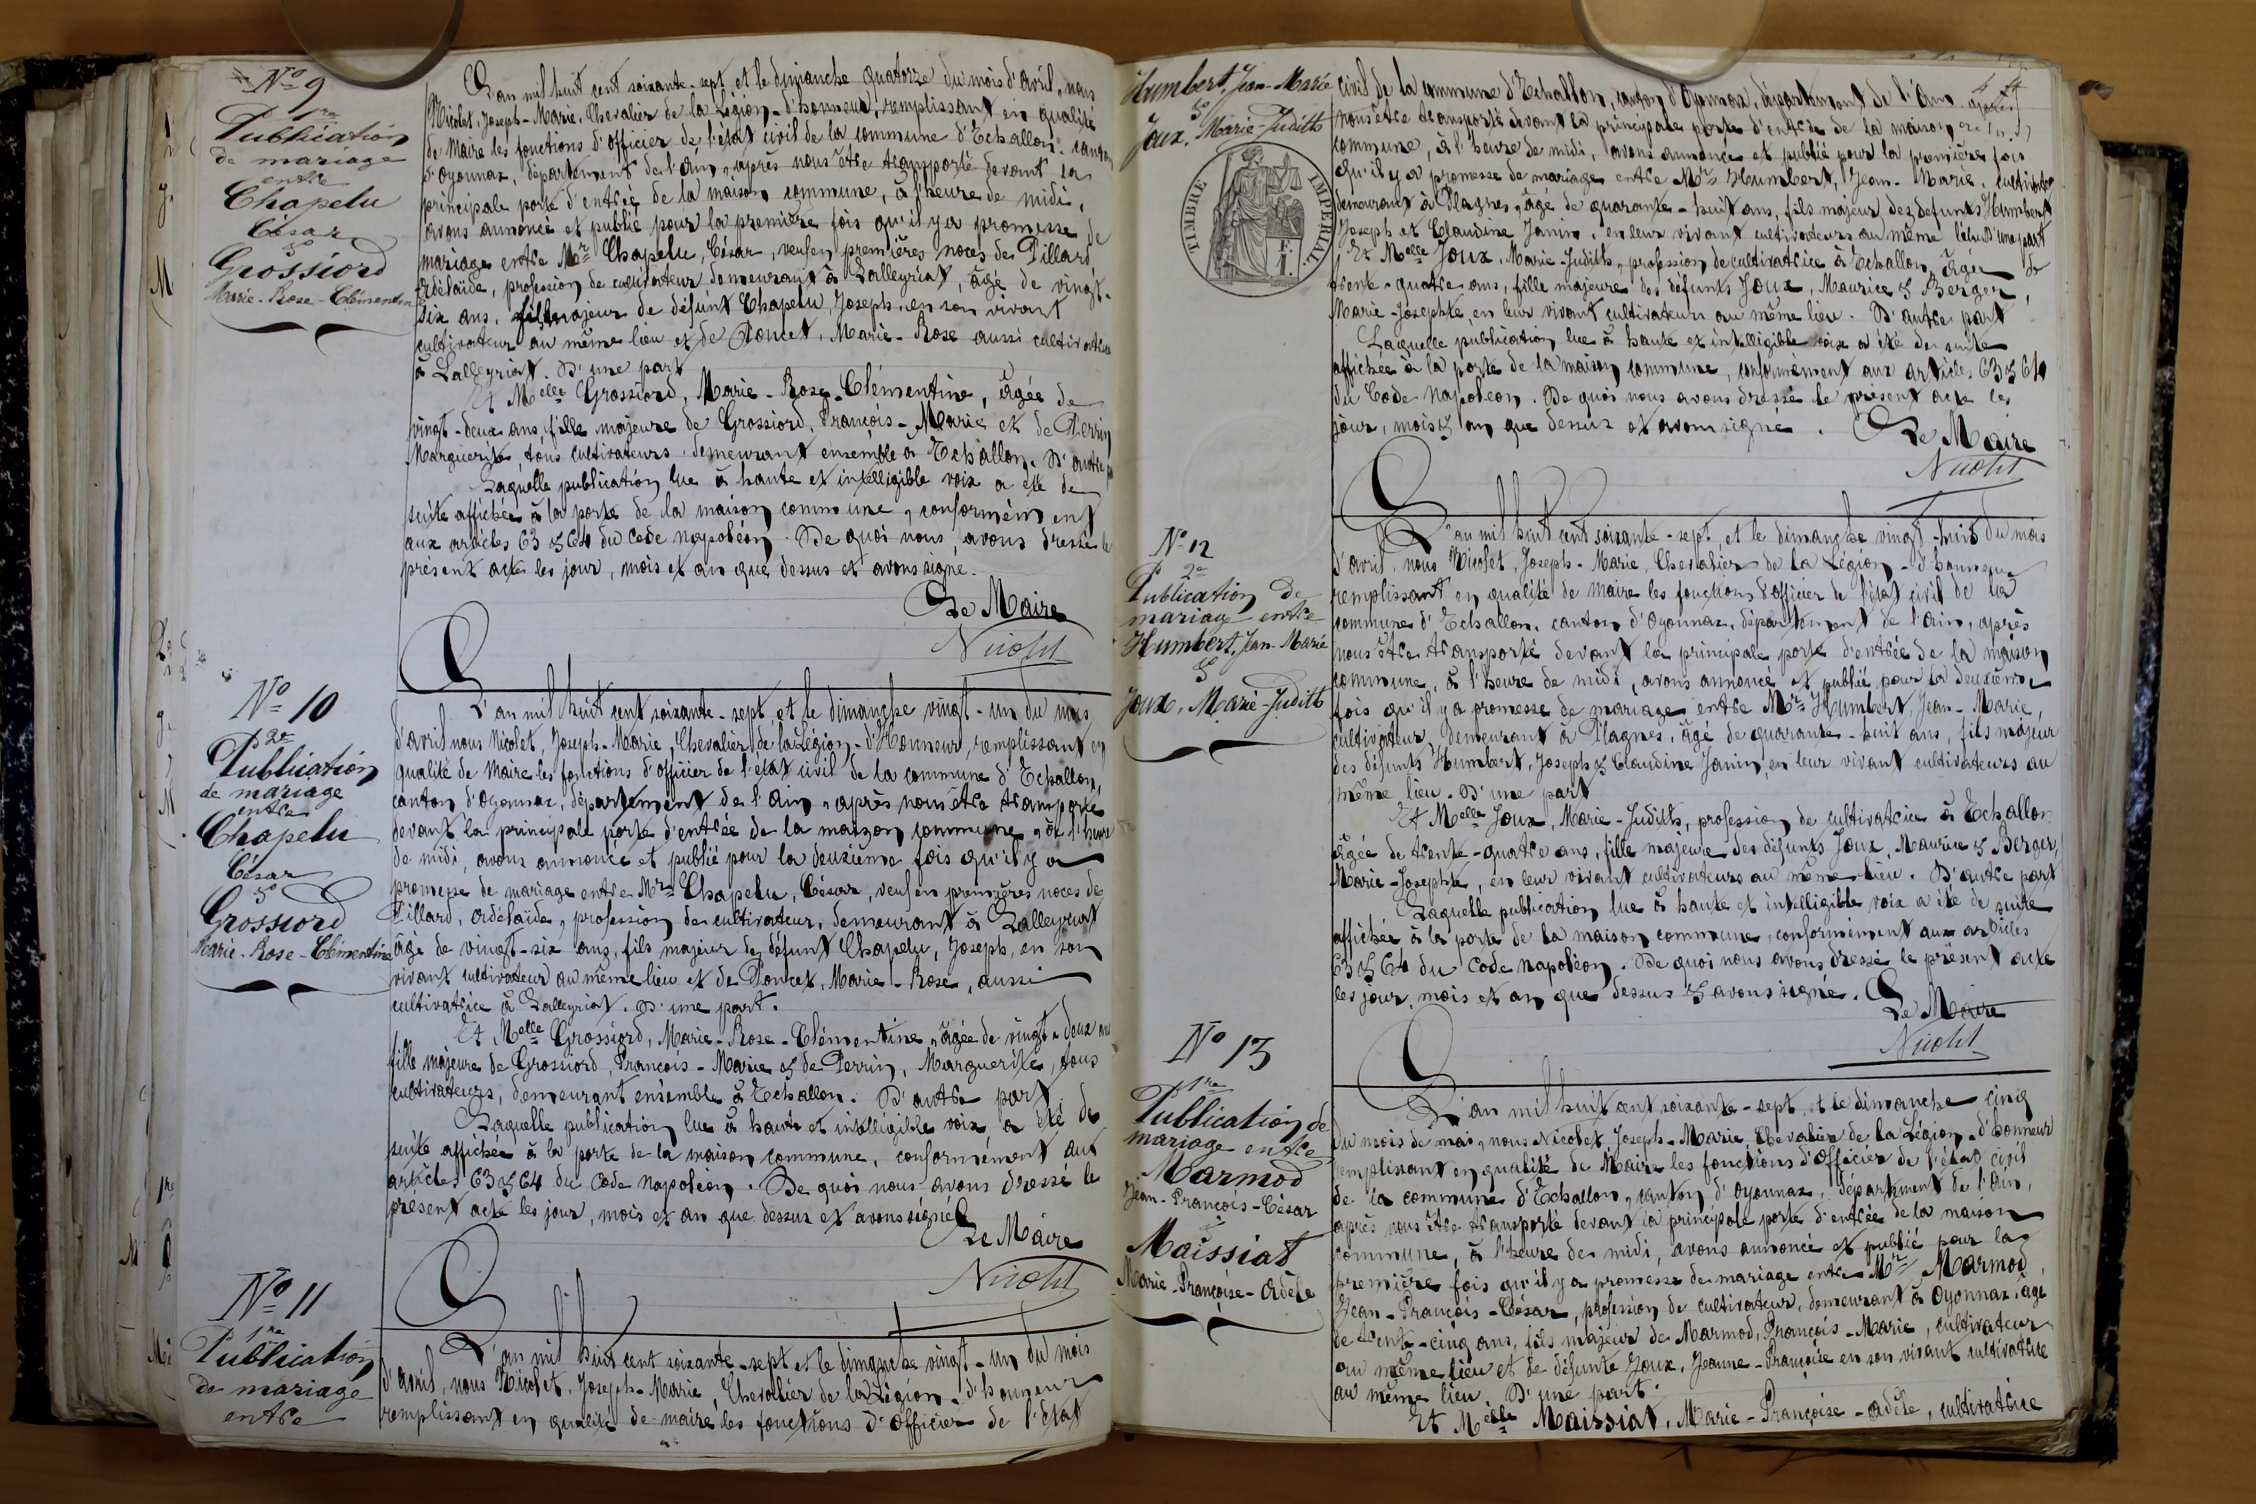 N° 9
1re
Publication
de mariage
entre
Chapelu
César
&
Grossiord
Marie-Rose-Clémentine
L'an mil huit cent soixante-sept, et le dimanche quatorze du mois d'avril, nous
Nicolet, Joseph-Marie, Chevalier de la Légion-d'honneur, remplissant en qualité
de Maire les fonctions d'officier de l'état civil de la commune d'Echallon, canton
d'Oyonnax, département de l'Ain, après nous être transporté devant la
principale porte d'entrée de la maison commune, à l'heure de midi,
avons annoncé et publié pour la première fois qu'il y a promesse de
mariage entre Mr Chapelu, César, veuf en premières noces de Pillard
Adélaïde, profession de cultivateur demeurant à Lalleyriat, âgé de vingt-
six ans, fils majeur de défunt Chapelu, Joseph, en son vivant
cultivateur au même lieu et de Poncet, Marie-Rose aussi cultivatrice
à Lalleyriat. D'une part
Et Melle Grossiord, Marie-Rose-Clémentine, âgée de
vingt-deux ans, fille majeure de Grossiord, François-Marie et de Perrin
Marguerite, tous cultivateurs demeurant ensemble à Echallon. D'autre part
Laquelle publication lue à haute et intelligible voix a été de
suite affichée à la porte de la maison commune, conformément
aux articles 63 & 64 du Code Napoléon. De quoi nous avons dressé le
présent acte les jour, mois et an que dessus et avons signé.
Le Maire
Nicolet
N° 10
2e
Publication
de mariage
entre
Chapelu
César
&
Grossiord
Marie-Rose-Clémentine
L'an mil huit cent soixante-sept, et le dimanche vingt-un du mois
d'avril nous Nicolet, Joseph-Marie, Chevalier de la Légion-d'Honneur, remplissant en
qualité de Maire les fonctions d'officier de l'état civil de la commune d'Echallon,
canton d'Oyonnax, département de l'Ain, après nous être transporté
devant la principale porte d'entrée de la maison commune, à l'heure
de midi, avons annoncé et publié pour la deuxième fois qu'il y a
promesse de mariage entre Mr Chapelu, César, veuf en premières noces de
Pillard, Adélaïde, profession de cultivateur, demeurant à Lalleyriat
âgé de vingt-six ans, fils majeur de défunt Chapelu, Joseph, en son
vivant cultivateur au même lieu et de Poncet, Marie-Rose, aussi
cultivatrice à Lalleyriat. D'une part.
Et Melle Grossiord, Marie-Rose-Clémentine, âgée de vingt-deux ans
fille majeure de Grossiord, François-Marie & de Perrin, Marguerite, tous
cultivateurs, demeurant ensemble à Echallon. D'autre part
Laquelle publication lue à haute et intelligible voix, a été de
suite affichée à la porte de la maison commune, conformément aux
articles 63 & 64 du Code Napoléon. De quoi nous avons dressé le
présent acte les jour, mois et an que dessus et avons signé
Le Maire
Nicolet
N° 11
1re
Publication
de mariage
entre
L'an mil huit cent soixante-sept et le dimanche vingt-un du mois
d'avril, nous Nicolet, Joseph-Marie, Chevalier de la Légion-d'honneur
remplissant en qualité de maire les fonctions d'Officier de l'état
Humbert, Jean-Marie
&
Joux, Marie-Judith
TIMBRE IMPERIAL
1 F.
civil de la commune d'Echallon, canton d'Oyonnax, département de l'Ain après
nous être transporté devant la principale porte d'entrée de la maison
commune, à l'heure de midi, avons annoncé et publié pour la première fois
qu'il y a promesse de mariage entre Mr Humbert, Jean-Marie, cultivateur
demeurant à Plagnes, âgé de quarante-huit ans, fils majeur des défunts Humbert
Joseph et Claudine Janin, en leur vivant cultivateurs au même lieu. D'une part
Et Melle Joux, Marie-Judith, profession de cultivatrice à Echallon, âgée de
trente-quatre ans, fille majeure des défunts Joux, Maurice & Berger,
Marie-Josephte, en leur vivant cultivateurs au même lieu. D'autre part
Laquelle publication lue à haute et intelligible voix a été de suite
affichée à la porte de la maison commune, conformément aux articles 63 & 64
du Code Napoléon. De quoi nous avons dressé le présent acte les
jour, mois & an que dessus et avons signé.
Le Maire
Nicolet
N° 12
2e
Publication de
mariage entre
Humbert, Jean-Marie
&
Joux, Marie-Judith
L'an mil huit cent soixante-sept, et le dimanche vingt-huit du mois
d'avril, nous Nicolet, Joseph-Marie, Chevalier de la Légion-d'honneur
remplissant en qualité de maire les fonctions d'officier de l'état civil de la
commune d'Echallon, canton d'Oyonnax, département de l'Ain, après
nous être transporté devant la principale porte d'entrée de la maison
commune, à l'heure de midi, avons annoncé et publié pour la deuxième
fois qu'il y a promesse de mariage entre Mr Humbert, Jean-Marie,
cultivateur, demeurant à Plagnes, âgé de quarante-huit ans, fils majeur
des défunts Humbert, Joseph & Claudine Janin, en leur vivant cultivateurs au
même lieu. D'une part
Et Melle Joux, Marie-Judith, profession de cultivatrice à Echallon
âgée de trente-quatre ans, fille majeure des défunts Joux, Maurice & Berger,
Marie-Josephte, en leur vivant cultivateurs au même lieu. D'autre part
Laquelle publication lue à haute et intelligible voix a été de suite
affichée à la porte de la maison commune, conformément aux articles
63 & 64 du Code Napoléon. De quoi nous avons dressé le présent acte
les jour, mois et an que dessus & avons signé.
Le Maire
Nicolet
N° 13
1re
Publication de
mariage entre
Marmod
Jean-François-César
&
Maissiat
Marie-Françoise-Adèle
L'an mil huit cent soixante-sept, et le dimanche cinq
du mois de mai, nous Nicolet, Joseph-Marie, Chevalier de la Légion-d'honneur
remplissant en qualité de Maire les fonctions d'Officier de l'état civil
de la commune d'Echallon, canton d'Oyonnax, département de l'Ain,
après nous être transporté devant la principale porte d'entrée de la maison
commune, à l'heure de midi, avons annoncé et publié pour la
première fois qu'il y a promesse de mariage entre Mr Marmod
Jean-François-César, profession de cultivateur, demeurant à Oyonnax, âgé
de trente-cinq ans, fils majeur de Marmod, François-Marie, cultivateur
au même lieu et de défunte Joux, Jeanne-Françoise en son vivant cultivatrice
au même lieu. D'une part.
Et Melle Maissiat, Marie-Françoise-Adèle, cultivatrice